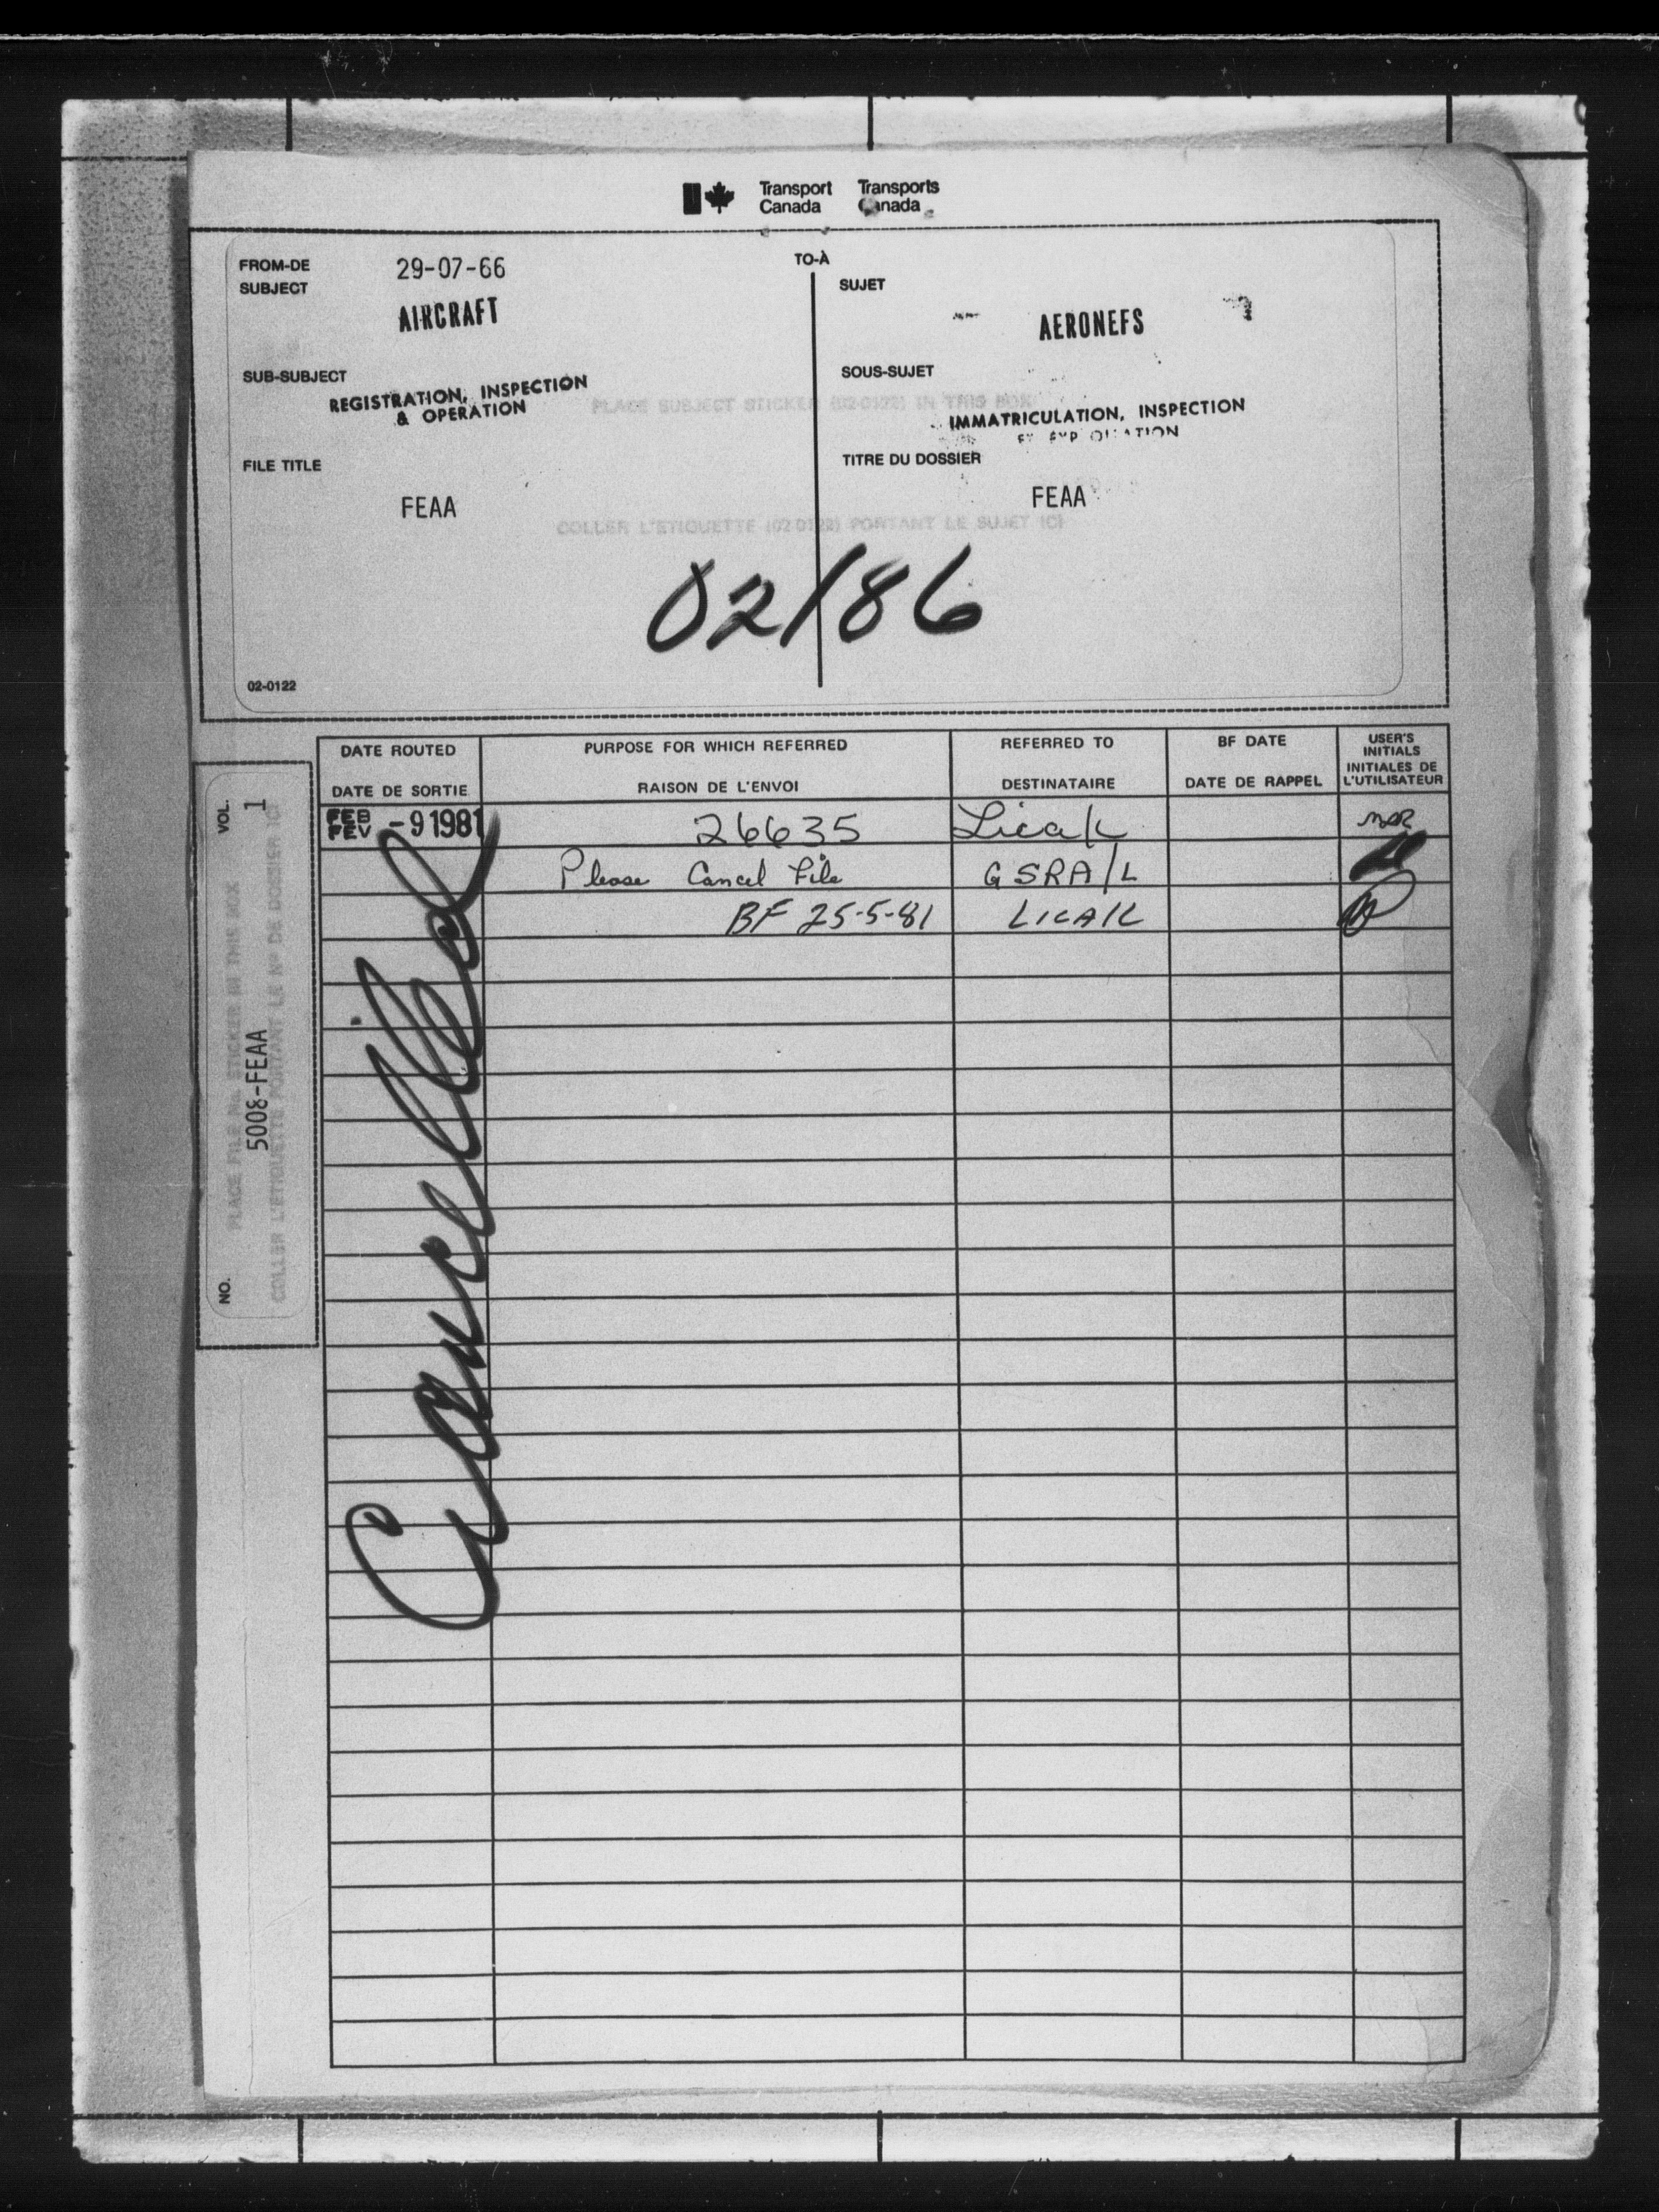 Transport Canada
Transports Canada
FROM-DE 29-07-66
TO-À
SUBJECT
AIRCRAFT
SUJET
AERONEFS
SUB-SUBJECT
REGISTRATION, INSPECTION
& OPERATION
SOUS-SUJET
IMMATRICULATION, INSPECTION
PLACE SUBJECT STICKER (02-0122) IN THIS BOX
FILE TITLE
FEAA
TITRE DU DOSSIER
FEAA
COLLER L'ETIQUETTE (02-0122) PORTANT LE SUJET ICI
02/86
02-0122
NO. VOL.
PLACE FILE No. STICKER IN THIS BOX
5008-FEAA 1
COLLER L'ETIQUETTE PORTANT LE Nº DE DOSSIER ICI
DATE ROUTED PURPOSE FOR WHICH REFERRED REFERRED TO BF DATE USER'S INITIALS
DATE DE SORTIE RAISON DE L'ENVOI DESTINATAIRE DATE DE RAPPEL INITIALES DE L'UTILISATEUR
FEB FEV -9 1981 26635
Please Cancel File GSRA/L
BF 25-5-81
Cancelled